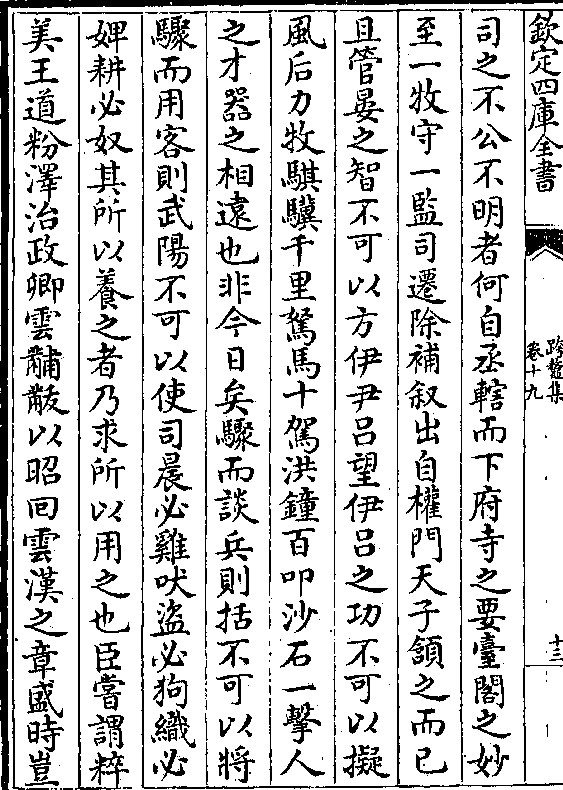 欽定四庫全書
跨鼇集
卷十九
十三
司之不公不明者何自丞轄而下府寺之要臺閣之妙
至一牧守一監司遷除補叙出自權門天子頷之而已
且管晏之智不可以方伊尹吕望伊吕之功不可以擬
風后力牧騏驥千里駑馬十駕洪鐘百叩沙石一擊人
之才器之相逺也非今日矣驟而談兵則括不可以將
驟而用客則武陽不可以使司晨必雞吠盜必狗織必
婢耕必奴其所以養之者乃求所以用之也臣嘗謂粹
美王道粉澤治政卿雲黼黻以昭回雲漢之章盛時豈